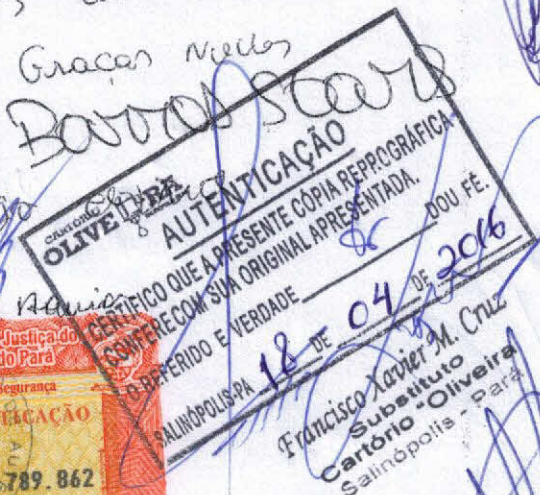 Graças
Barros
CARTÓRIO
OLIVEIRA
AUTENTICAÇÃO
CERTIFICO QUE A PRESENTE CÓPIA REPROGRÁFICA
CONFERE COM SUA ORIGINAL APRESENTADA.
O REFERIDO E VERDADE DOU FÉ.
SALINÓPOLIS-PA 18 DE 04 DE 2016
Francisco Xavier M. Cruz
Substituto
Cartório "Oliveira
Salinópolis - Pará
Justiça do
do Pará
Segurança
ICAÇÃO
789.862